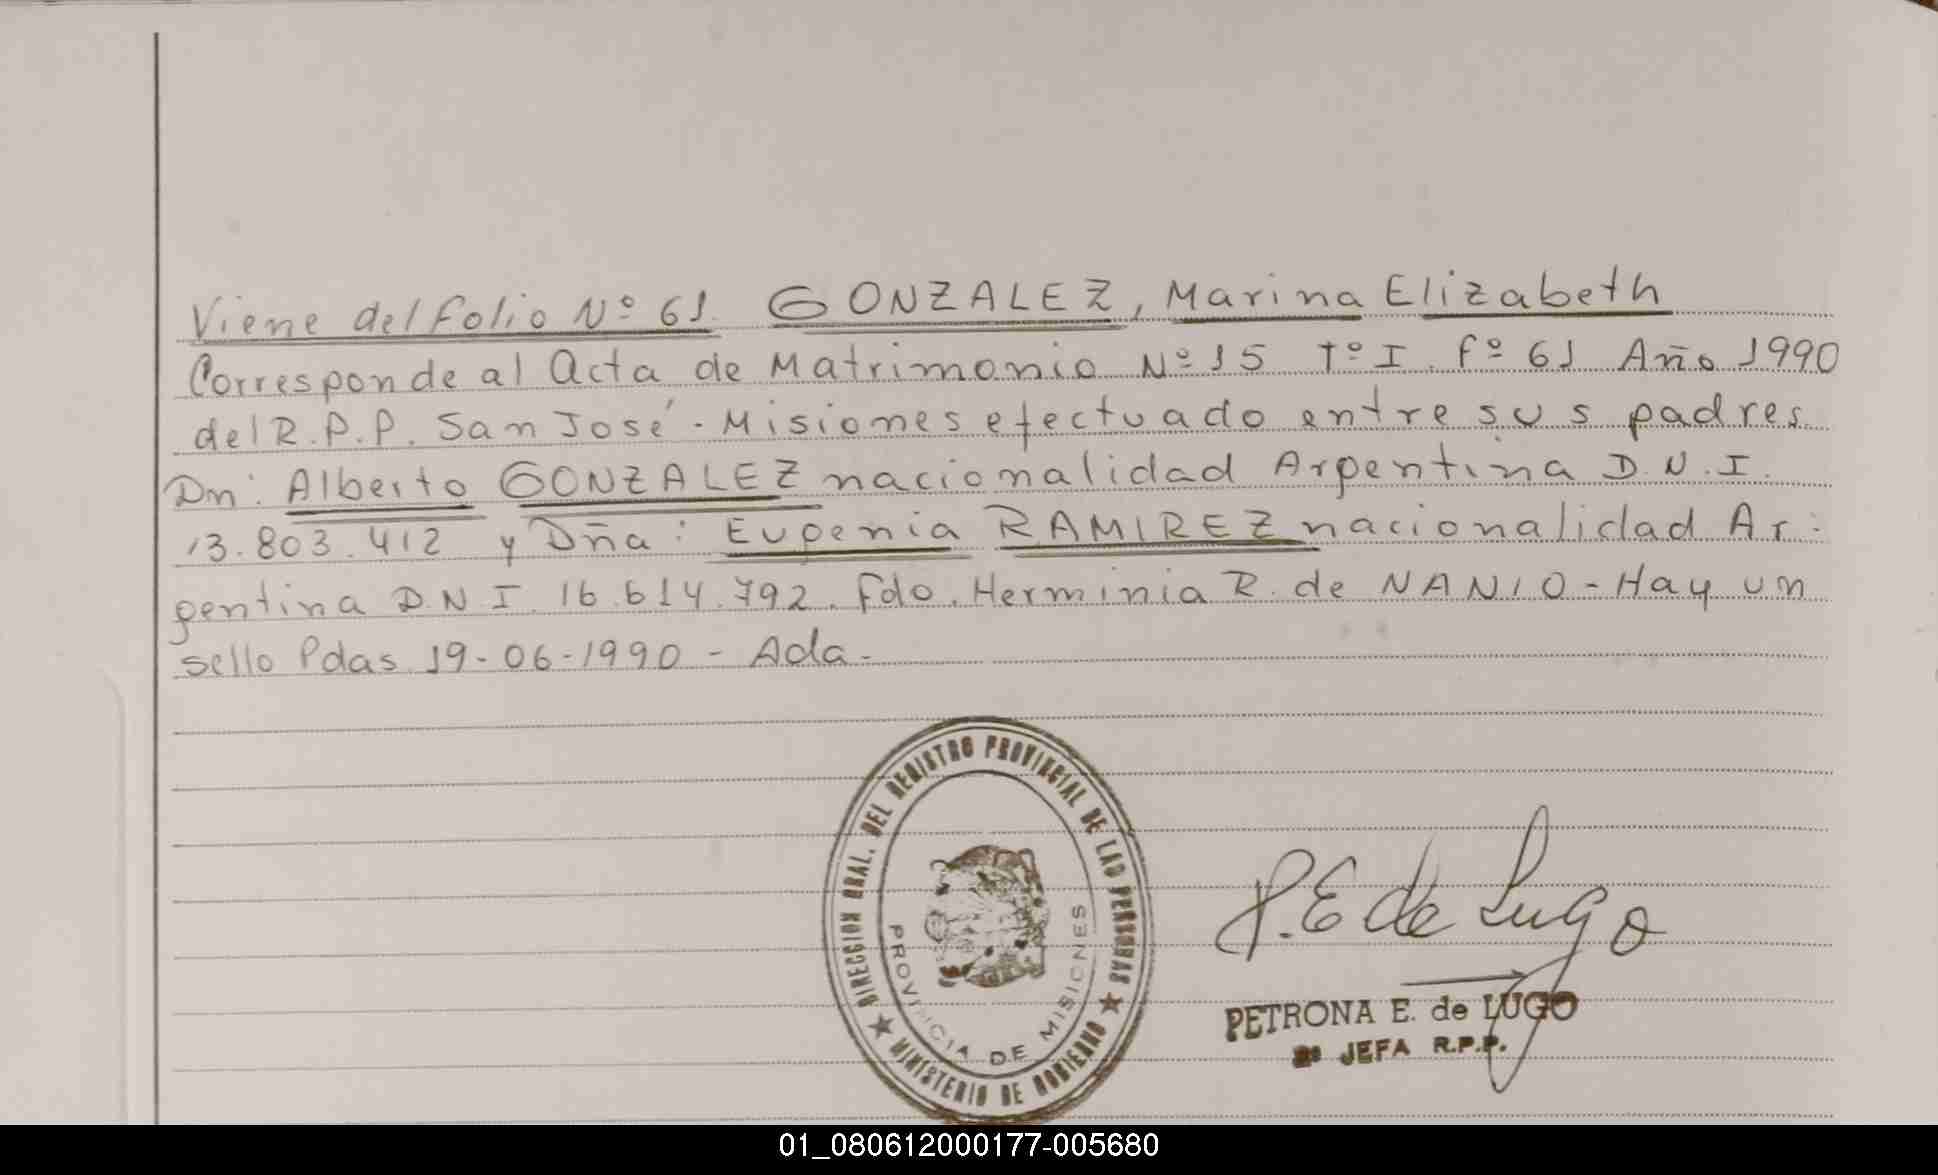 Viene del folio Nº 61. GONZALEZ, Marina Elizabeth
Corresponde al Acta de Matrimonio Nº 15 Tº I. fº 61 Año 1990
del R.P.P. San José - Misiones efectuado entre sus padres
Dn: Alberto GONZALEZ nacionalidad Argentina D.N.I.
13.803.412 y Dña: Eugenia RAMIREZ nacionalidad Ar-
gentina D.N.I. 16.614.792. fdo. Herminia R. de NANIO - Hay un
sello Pdas 19-06-1990 - Ada-
DIRECCION GRAL. DEL REGISTRO PROVINCIAL DE LAS PERSONAS
PROVINCIA DE MISIONES
★ MINISTERIO DE GOBIERNO ★
P. E de Lugo
PETRONA E. de LUGO
2ª JEFA R.P.P.
01_080612000177-005680